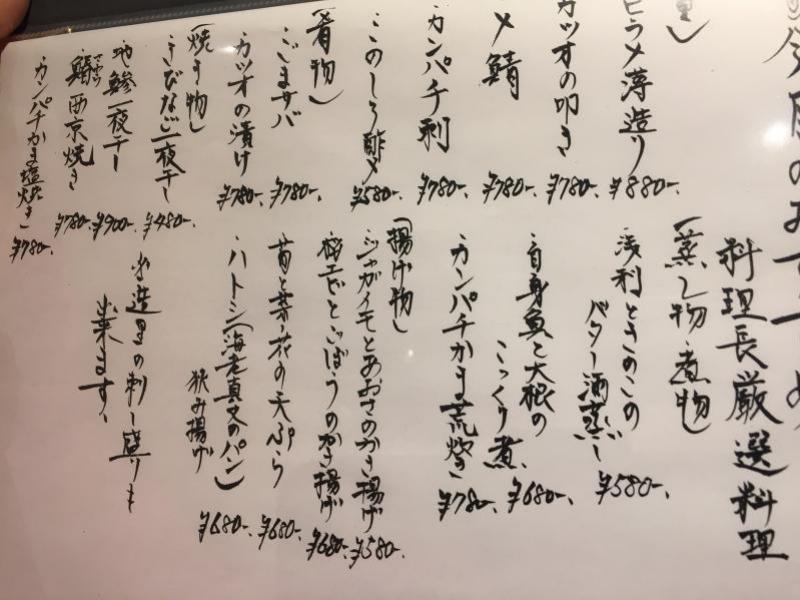 今月のおすすめ
料理長厳選料理
ヒラメ薄造り ¥880-
カツオの叩き ¥780-
〆鯖 ¥780-
カンパチ刺 ¥780-
このしろ酢〆 ¥580-
(肴物)
ごまサバ ¥780-
カツオの漬け ¥780-
(焼き物)
きびなご一夜干 ¥480-
地鯵一夜干 ¥900-
西京焼き ¥780-
カンパチかま塩焼き ¥780-
(蒸し物・煮物)
浅利ときのこの
バター酒蒸し ¥580-
白身魚と大根の
こっくり煮 ¥680-
カンパチかま荒炊き ¥780-
(揚げ物)
ジャガイモとあおさのかき揚げ ¥580-
桜エビとごぼうのかき揚げ ¥680-
筍と菜の花の天ぷら ¥680-
ハトシ(海老真丈のパン)
挟み揚げ ¥680-
お造里の刺し盛りも
出来ます。